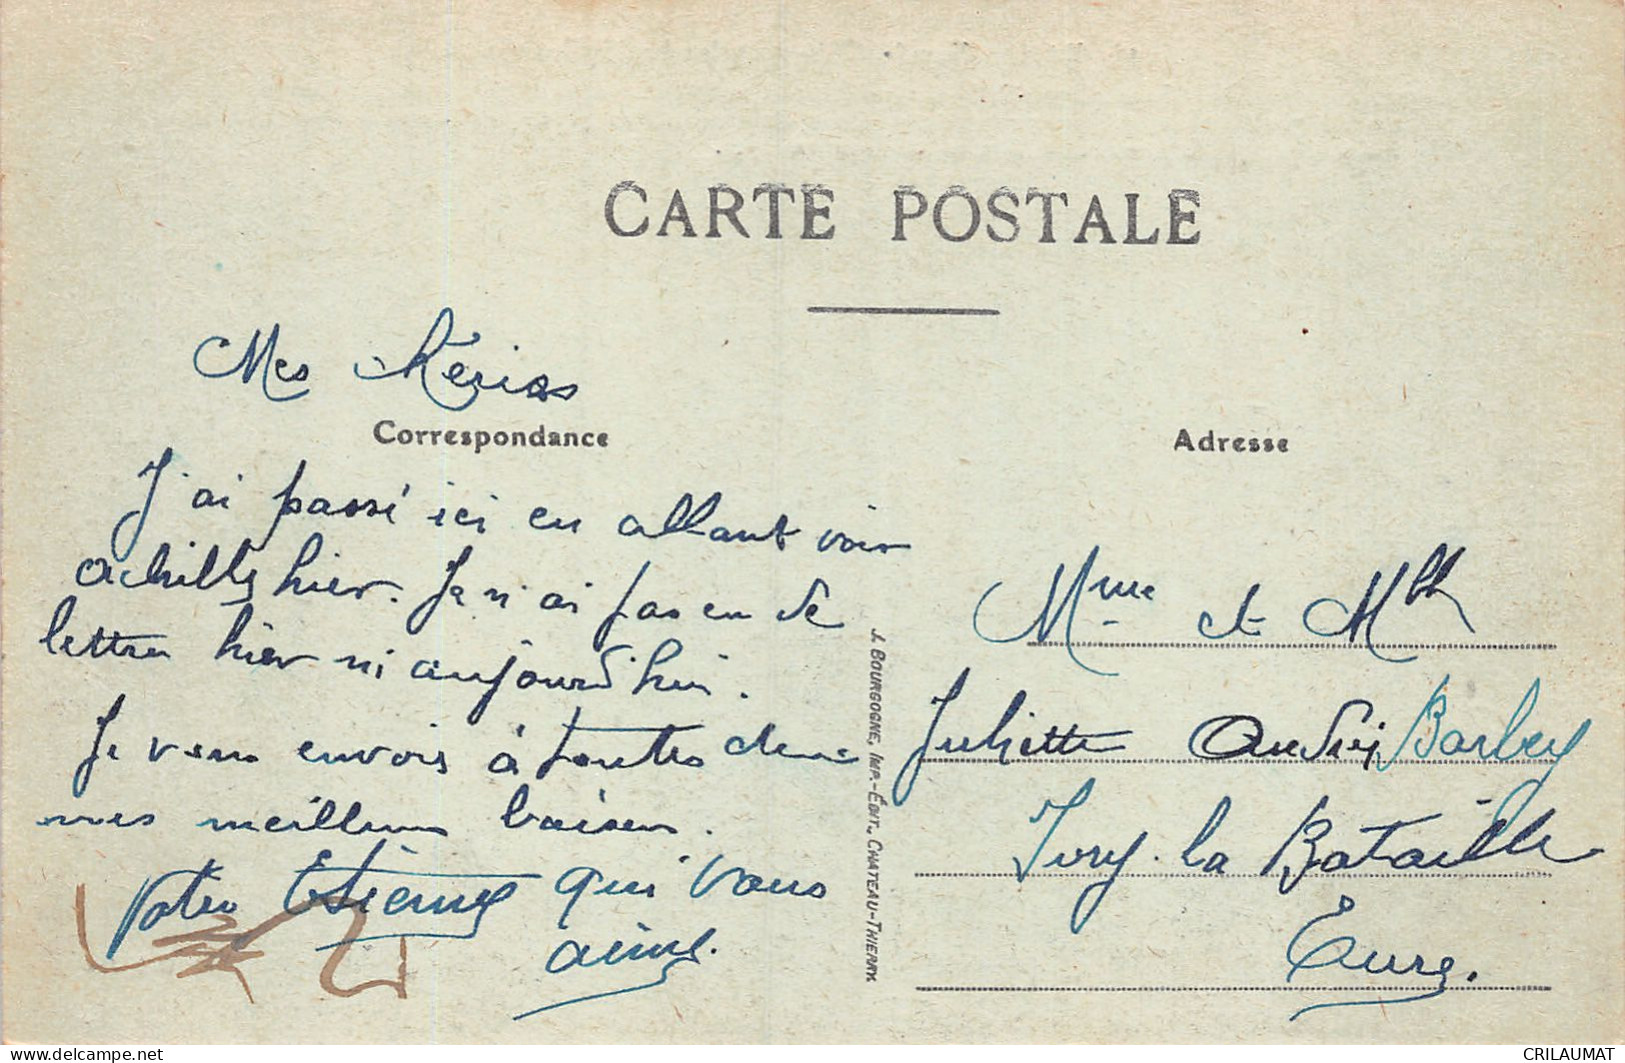 CARTE POSTALE
Mes
Correspondance
J'ai passé ici en allant voir
achille hier. Je n'ai pas eu de
lettre hier ni aujourd'hui.
Je vous envois à toutes deux
mes meilleurs baisers.
Votre Etienne qui vous
aime.
J. BOURGOGNE, IMP.-ÉDIT., CHATEAU-THIERRY
Adresse
Mme et Mlle
Juliette Barbey
Ivry-la Bataille
Eure.
www.delcampe.net
CRILAUMAT